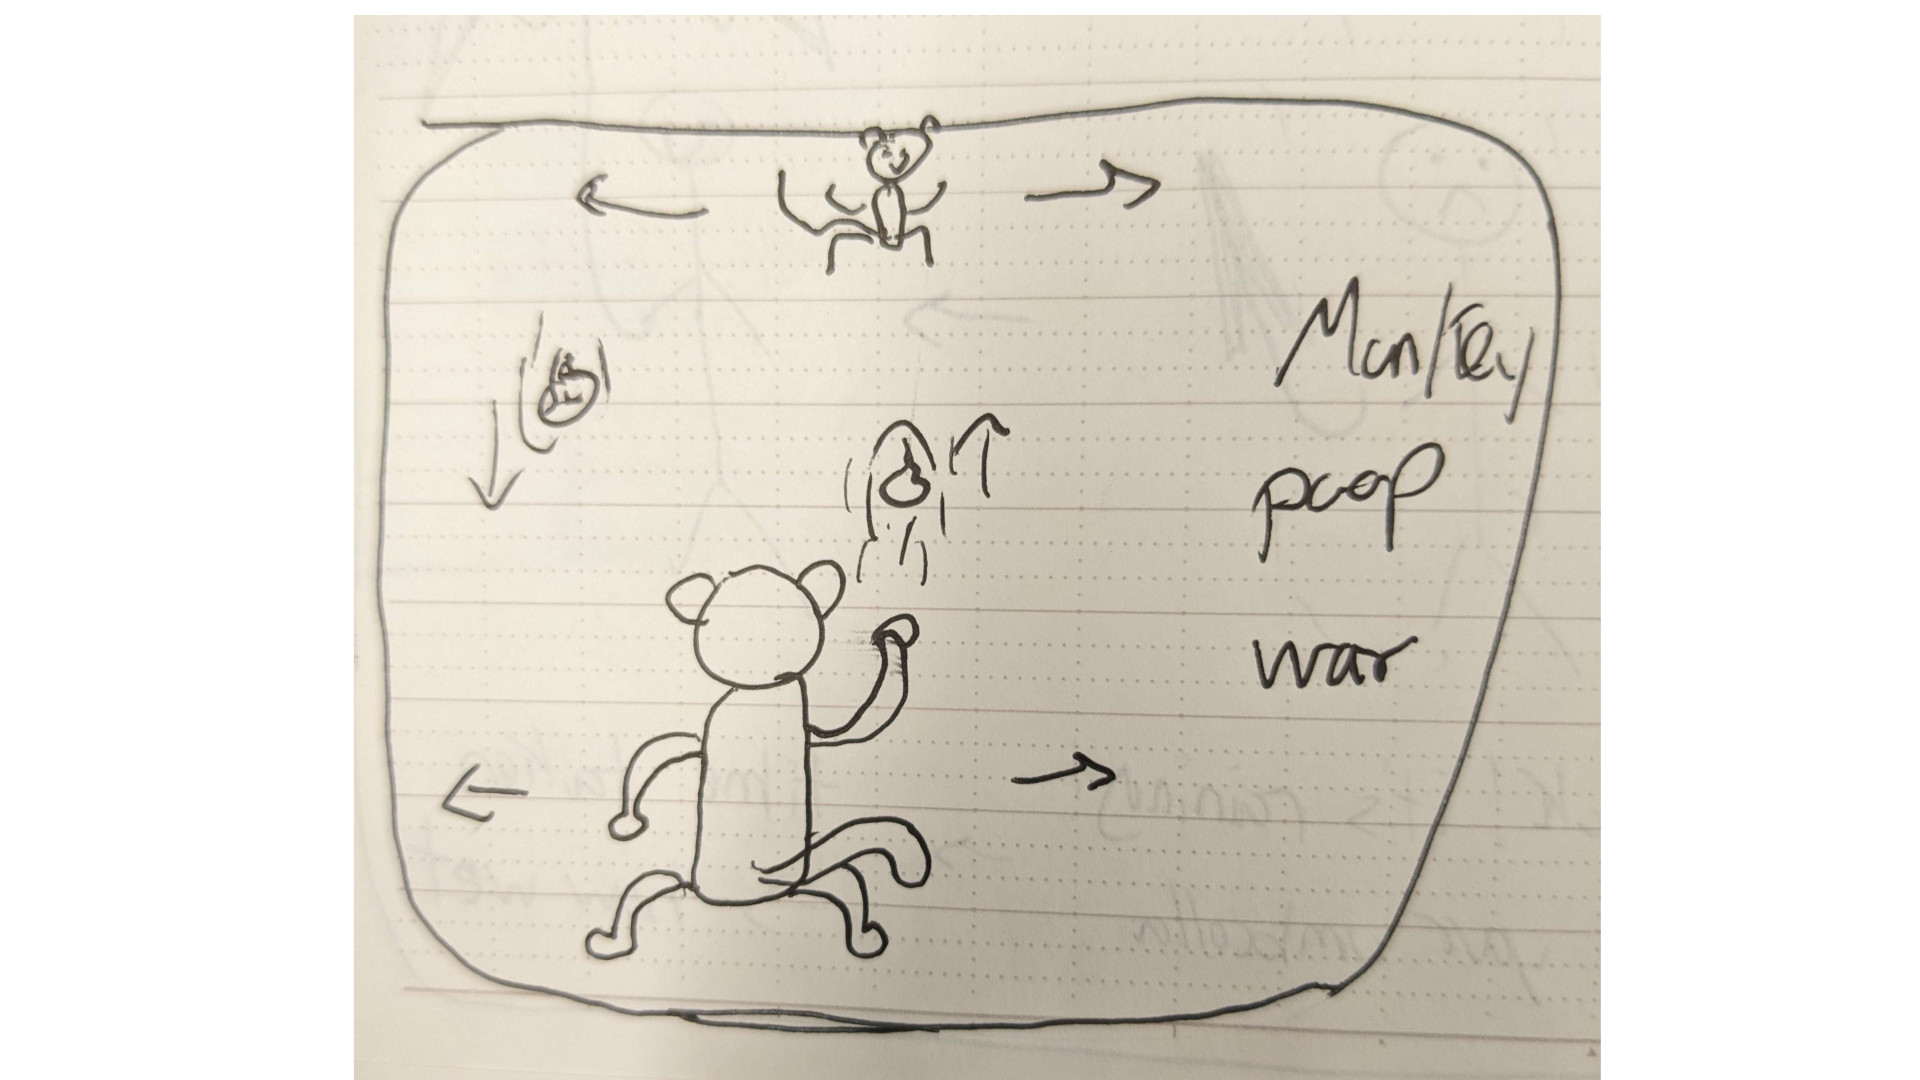 Monkey
poop
war